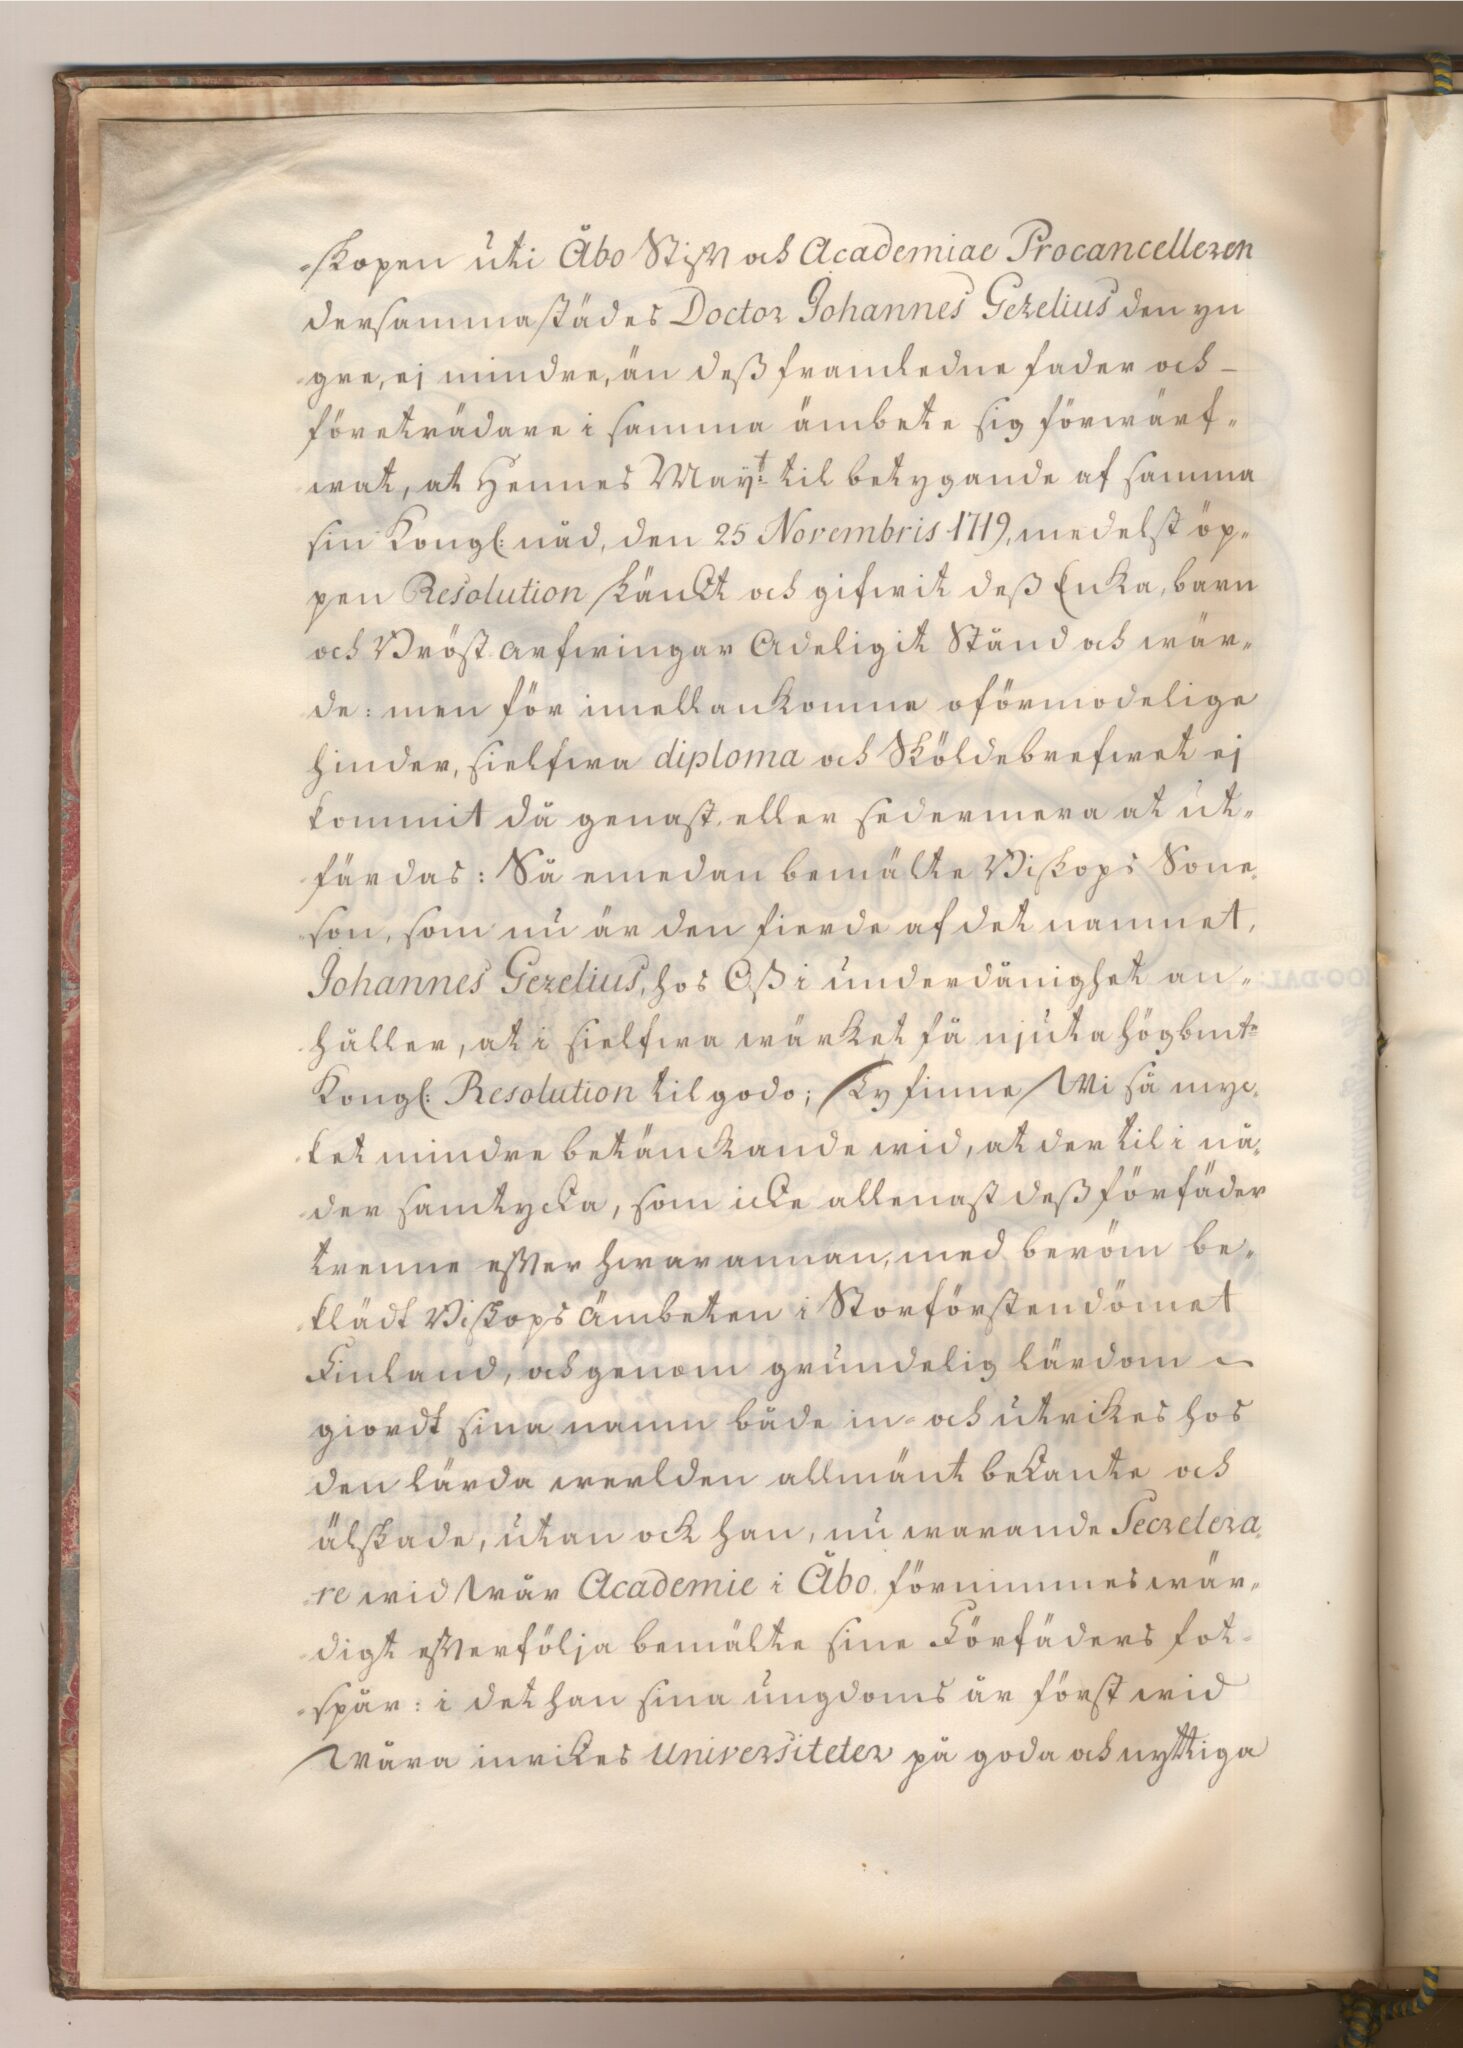 -skopen uti Åbo Stift och Academiae Procancelleren
dersammastädes Doctor Johannes Gezelius den yn
-gre, ej mindre, än deß framledne fader och -
företrädare i samma ämbete sig förwärf-
wat, at Hennes Maÿt: til betygande af samma
sin Kongl: nåd, den 25 Novembris 1719, medelst öp-
pen Resolution skänckt och gifwit deß Enka, barn
och Bröst arfwingar Adeligit Stånd och wär-
de: men för imellankomne oförmodelige
hinder, sielfwa diploma och Sköldebrefwet ej
kommit då genast eller sedermera at ut-
färdas: Så emedan bemälte Biskops Sone-
son, som nu är den fierde af det namnet,
Johannes Gezelius, hos Oß i underdånighet an-
håller, at i sielfwa wärket få njuta högbmte
Kongl: Resolution til godo; Ty finne Wi så myc-
ket mindre betänckande wid, at der til i nå-
der samtycka, som icke allenast deß förfäder
trenne efter hwarannan, med beröm be-
klädt Biskops Ämbeten i Storförstendömet
Finland, och genom grundelig lärdom
giordt sina namn både in- och utrikes hos
den lärda werlden allmänt bekante och
älskade, utan ock han, nu warande Secretera-
re wid Wår Academie i Åbo förnimmes wär-
digt efterfölja bemälte sine Förfäders fot-
-spår: i det han sina ungdoms år först wid
Wåra inrikes Universiteter på goda och nyttiga